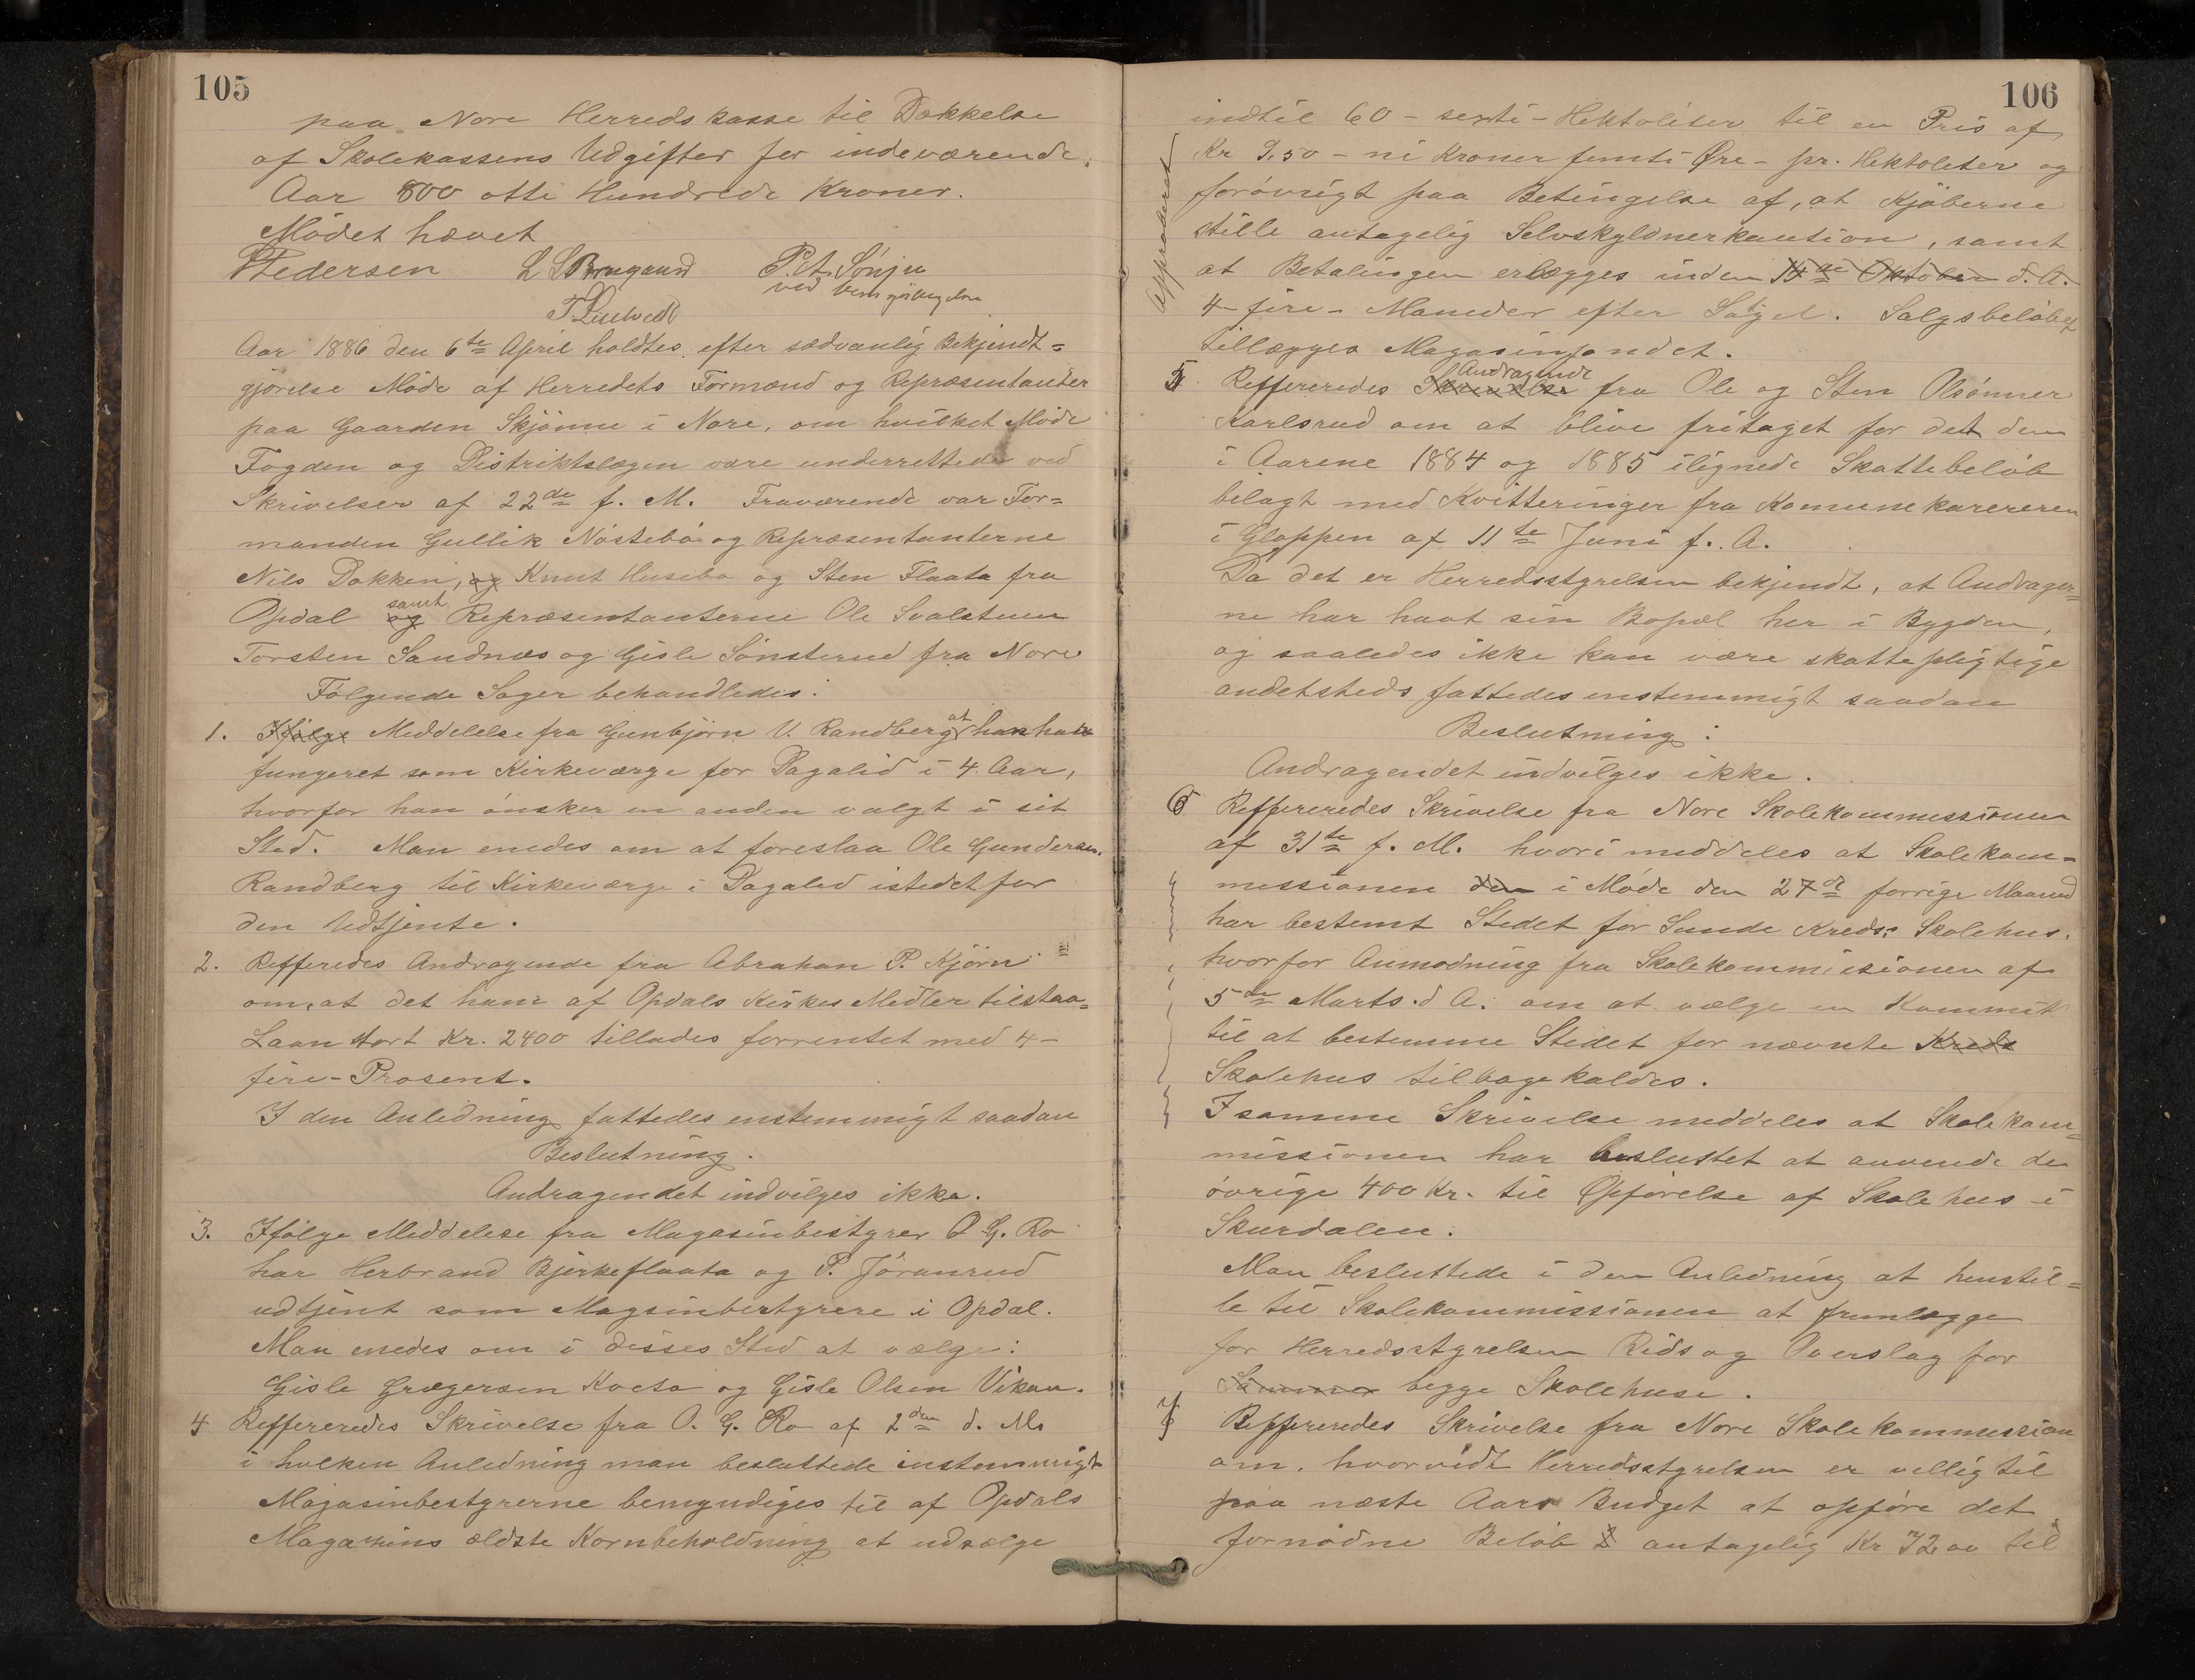 105
paa Nore Herredskasse til Dækkelse
af Skolekassens Udgifter for indeværende
Aar 800 otte Hundrede Kroner.
Mödet hævet
Pedersen L S Brugaard P. A. Sönju
ved
Aar 1886 den 6te April holdtes efter sædvanlig Bekjendt=
gjörelse Möde af Herredets Formænd og Repræsentanter
paa Gaarden Skjönne i Nore, om hvilket Möde
Fogden og Distriktslægen vare underrettede ved
Skrivelser af 22de f. M. Fraværende var For=
manden Gullik Nöstebö og Repræsentanterne
Nils Dokken, og Knut Husebo og Sten Flaata fra
Opdal samt og Repræsentanterne Ole Svalstuen
Torsten Sandnes og Gisle Sönsterud fra Nore
Fölgende Sager behandledes:
1. Ifölge Meddelelse fra Gunbjörn V. Randberg at han har
fungeret som Kirkeværge for Dagalid i 4 Aar,
hvorfor han önsker en anden valgt i sit
Sted. Man enedes om at foreslaa Ole Gundersen
Randberg til Kirkeværge i Dagalid istedetfor
den Udtjente.
2. Refferedes Andragende fra Abraham P. Kjörn
om, at det ham af Opdals Kirkes Midler tilstaa=
Laan stort Kr. 2400 tillades forrentet med 4-
fire-Prosent.
I den Anledning fattedes enstemmigt saadan
Beslutning.
Andragendet indvilges ikke.
3. Ifölge Meddelese fra Magasinbestyrer O. G. Ro
har Herbrand Bjerkeflaata og P. Jöranrud
udtjent som Magsinbestyrere i Opdal.
Man enedes om i disses Sted at vælge:
Gisle Grægersen Kveta og Gisle Olsen Vikan.
4 Reffereredes Skrivelse fra O. G. Ro af 2den d. Ms
i hvlken Anledning man besluttede enstemmigt
Magasinbestyrerne bemyndiges til af Opdals
Magasins ældste Kornbeholdning at udsælge
106
Approberet
indtil 60 - sexti - Hektoliter til en Pris af
Kr 9,50 - ni Kroner femti Øre - pr. Hektoleter og
forövrigt paa Betingelse af, at Kjöberne
stille antagelig Selvskyldnerkaution, samt
at Betalingen erlægges inden 14de Oktober d. A.
4 - fire - Maneder efter Salget. Salgsbelöbet
tillægges Magasinfondet.
5 Reffereredes Skrivelse Andragende fra Ole og Sten Olsönner
Karlsrud om at blive fritaget for det dem
i Aarene 1884 og 1885 ilignede Skattebelöb
belagt med Kvitteringer fra Komunekasereren
i Gloppen af 11te Juni f. A.
Da det er Herredsstyrelsen bekjendt, at Andrager=
ne har havt sin Bopæl her i Bygden,
og saaledes ikke kan være skattepligtige
andetsteds fattedes enstemmigt saadan
Beslutning:
Andragendet indvilges ikke.
6 Reffereredes Skrivelse fra Nore Skolekommissionen
af 31te f. M. hvori meddeles at Skolekom=
missionen den i Möde den 27de forrige Maaned
har bestemt Stedet for Sunde Kreds's Skolehus,
hvorfor Anmodning fra Skolekommissionen af
5te Marts d. A. om at vælge en Kommité
til at bestemme Stedet for nævnte Kreds
Skolehus tilbagekaldes.
I samme Skrivelse meddeles at Skolekom=
missionen har besluttet at anvende de
övrige 400 Kr. til Opförelse af Skolehus i
Skurdalen.
Man besluttede i den Anledning at henstil=
le til Skolekommissionen at fremlægge
for Herredsstyrelsen Rids og Overslag for
Samme begge Skolehuse.
7 Reffereredes Skrivelse fra Nore Skolekommission
om, hvorvidt Herredsstyrelsen er villig til
paa næste Aars Budget at opföre det
fornödne Belöb antagelig Kr 72,00 til